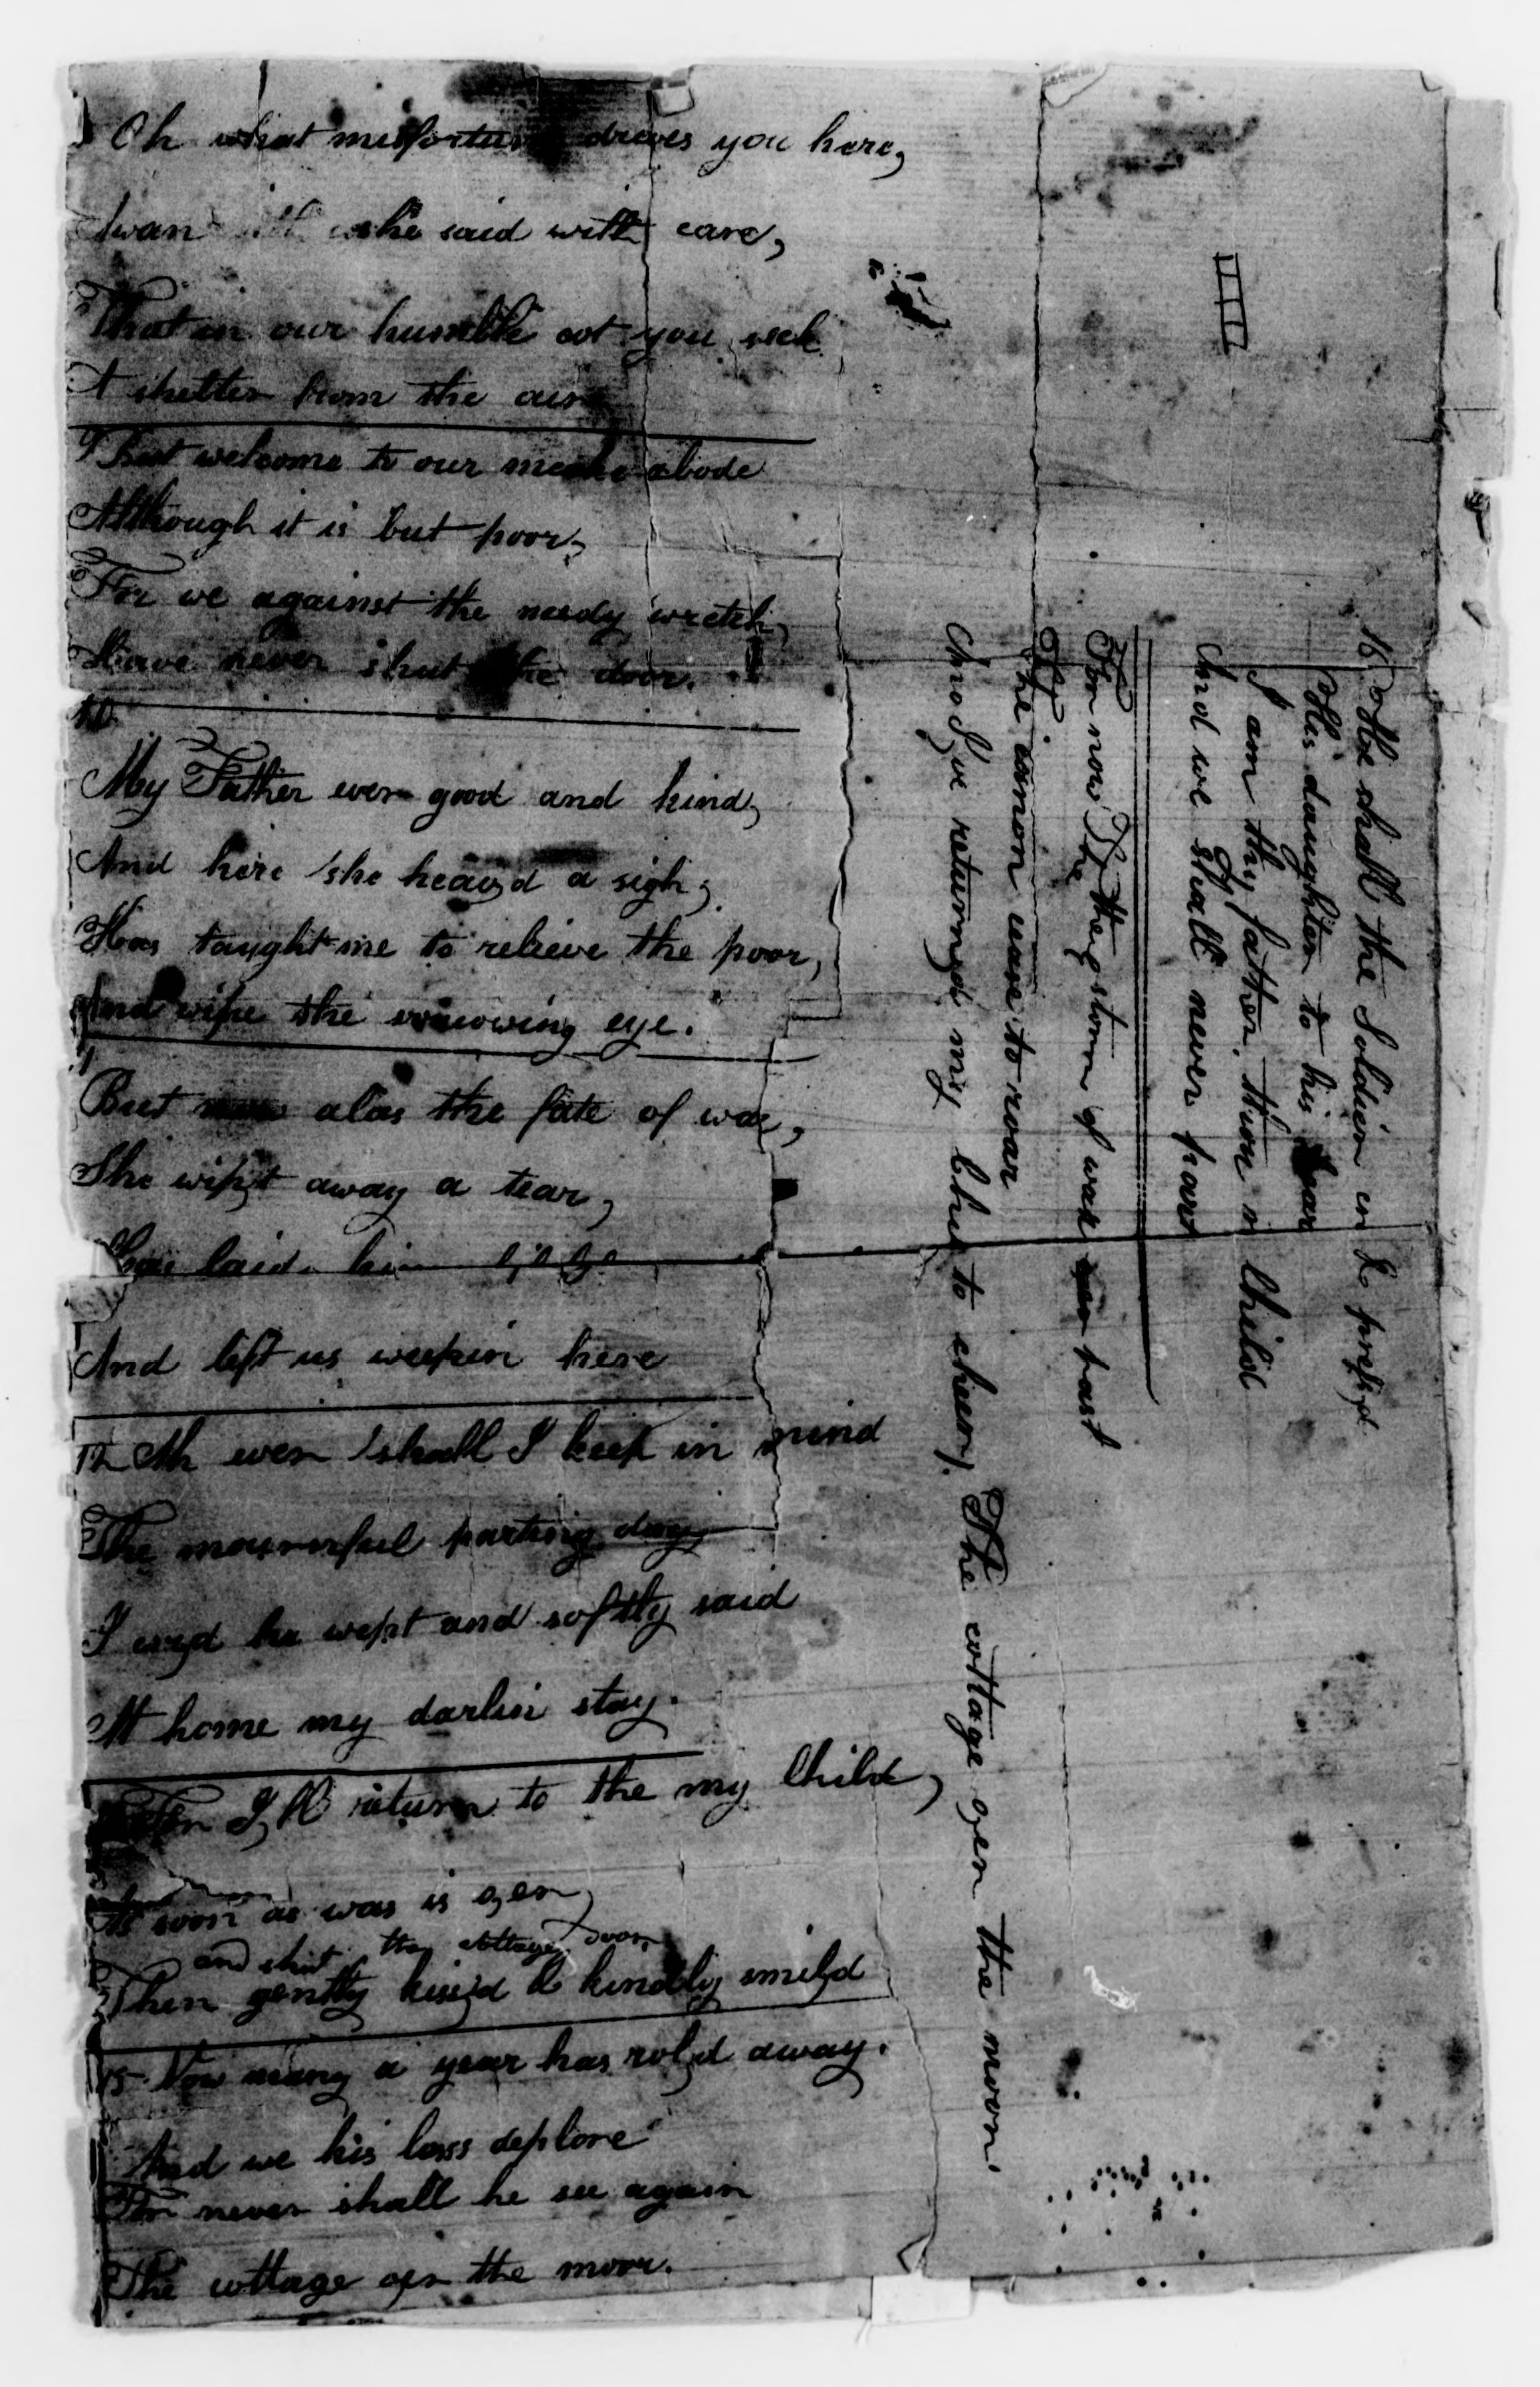 Oh what misfortune drives you here,
she said with care,
That in our humble cot you seek
A shelter from the air
9 But welcome to our meake abode
Although it is but poor,
For we against the needy wretch,
Have never shut the door.
10
My Father ever good and kind,
And here she heav,d a sigh,
Has taught me to relieve the poor,
And wipe the sorrowing eye.
11
But alas the fate of war,
She wip,t away a tear,
Has laid him
And left us weepin here
12 Ah ever shall I keep in mind
The mournful parting day
I cry,d he wept and softly said
At home my darlin stay.
For I,ll return to the my Child,
As soon as war is o,er,
and shut the cottage door,
Then gently kiss,d & kindly smil,d
15 Now many a year has rol,d away.
And we his loss deplore
For never shall he see again
The cottage oer the moor.
16 He shall the Soldier in & pres,d
His daughter to his
I am thy father, thou m Child
And we shall never part
For now The the storm of war past
The canon cease to roar
And I,ve return,d my Chil to cheer,
The cottage o,er the moor.